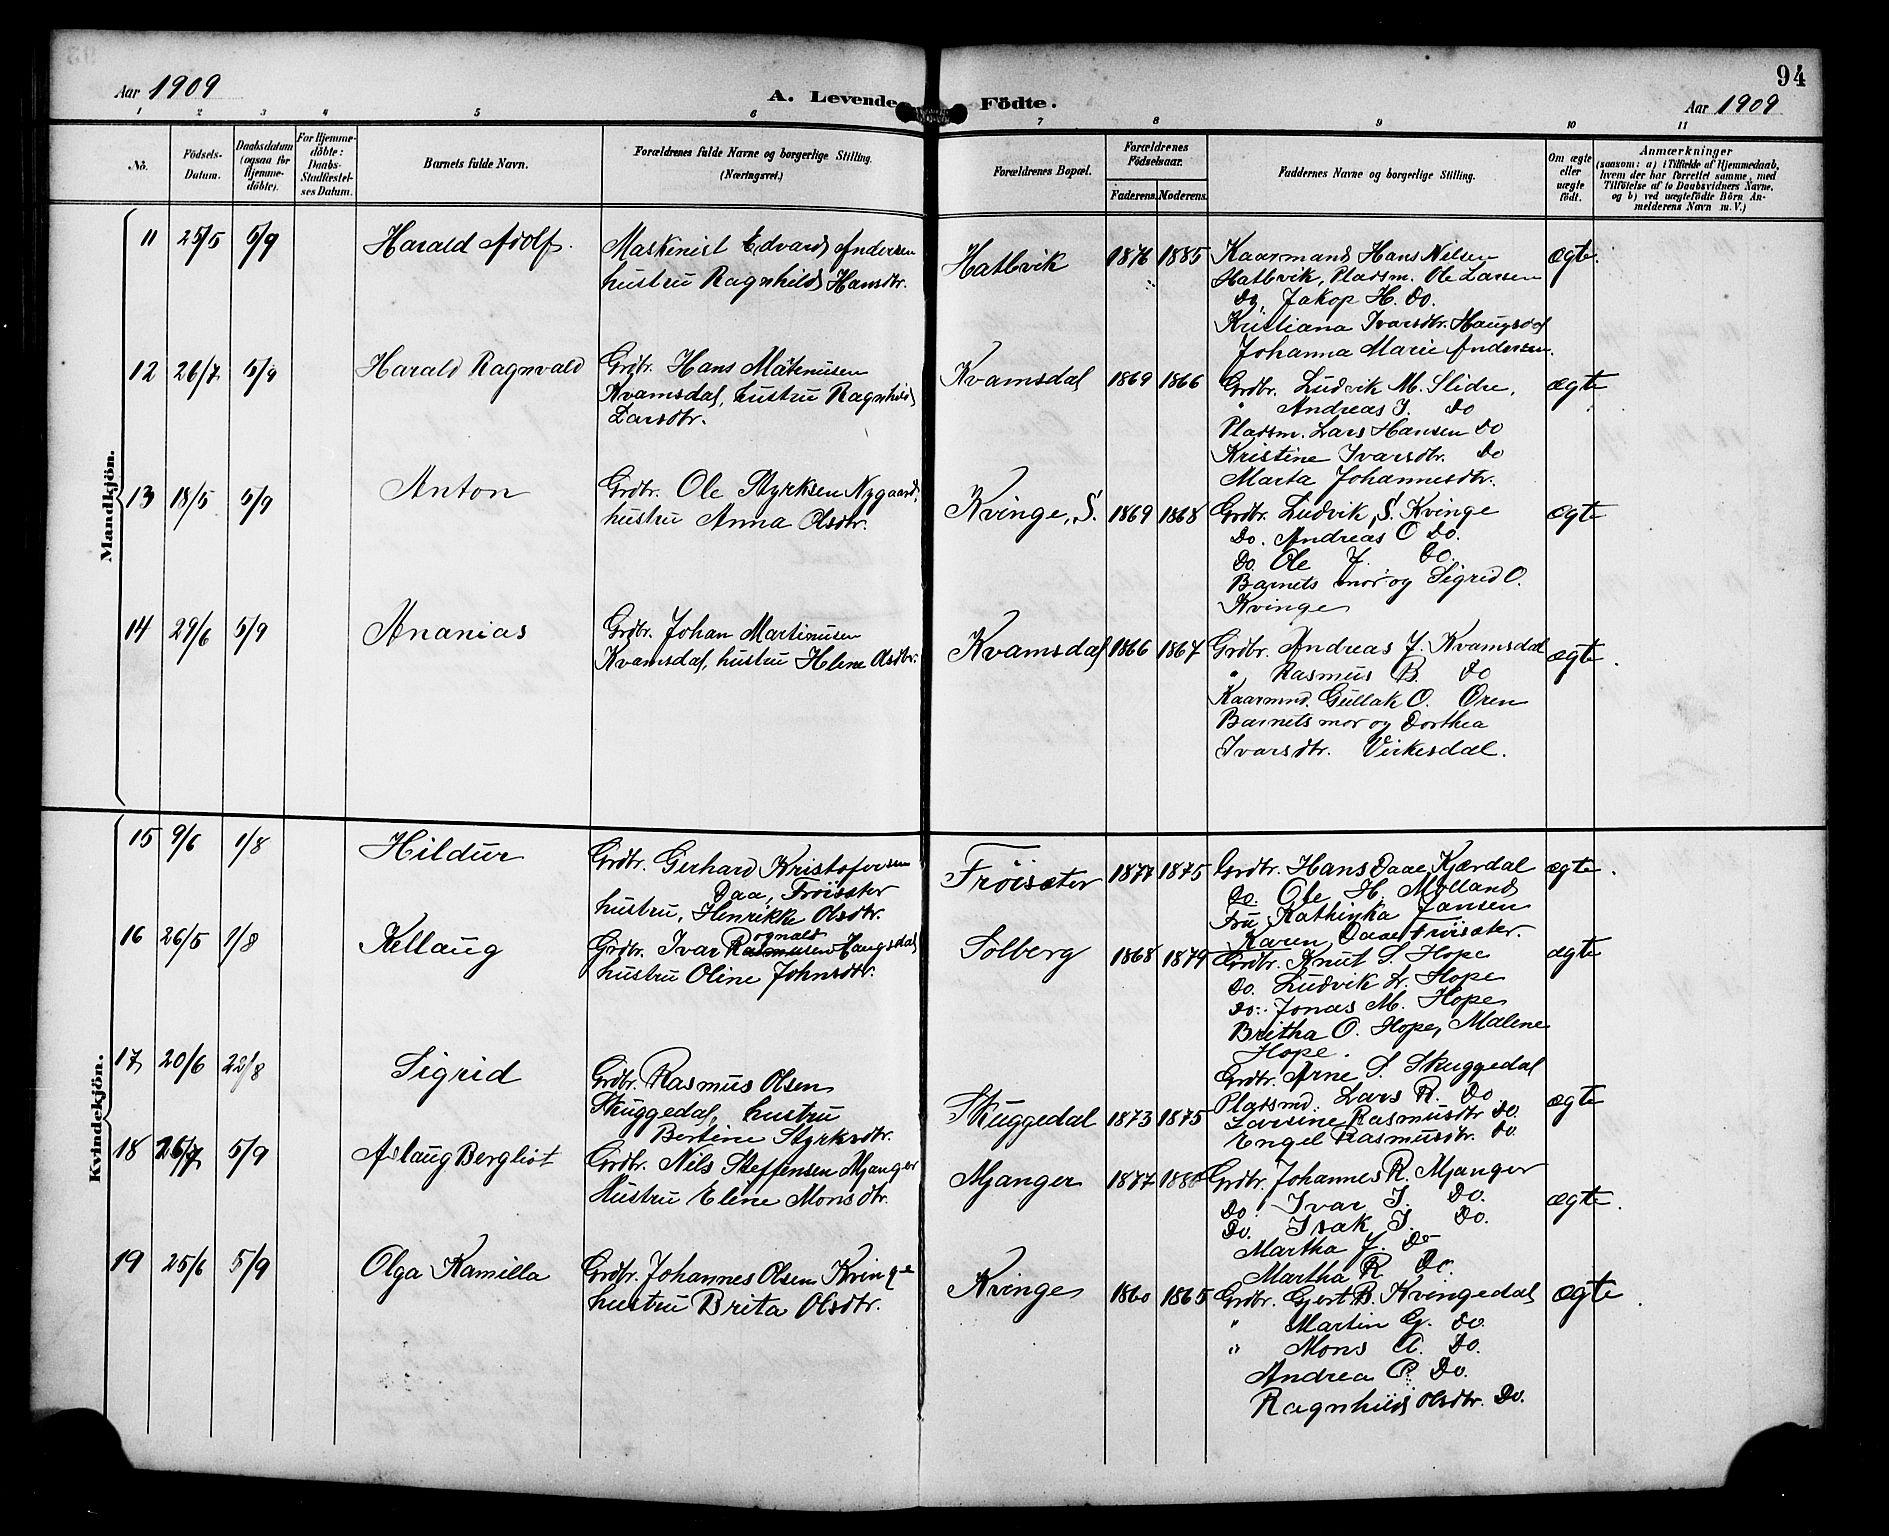 94
Aar 1909
A. Levende Födte.
Aar 1909
1 2 3 4 5 6 7 8 9 10 11
No.
Födsels-Datum.
Daabsdatum (ogsaa for Hjemme-döbte).
For Hjemme-döbte: Daabs-Stadfæstel-ses Datum.
Barnets fulde Navn.
Forældrenes fulde Navne og borgerlige Stilling.
(Næringsvei.)
Forældrenes Bopæl.
Forældrenes Födselsaar.
Faderens. Moderens.
Faddernes Navne og borgerlige Stilling.
Om ægte eller uægte födt.
Anmærkninger
(saasom: a) i Tilfælde af Hjemmedaab,
hvem der har forrettet samme, med
Tilföielse af to Daabsvidners Navne,
og b) ved uægtefödte Börn An-
melderens Navn m. V.)
Mandkjön.
11 25/5 5/9 Harald Adolf.
Maskinist Edvard Andersen
hustru Ragnhild Hansdtr.
Hatlvik 1876 1885
Kaarmand Hans Nilsen
Hatlvik, Pladsm. Ole Larsen
Do, Jakop H. Do.
Kristiana Ivarsdtr. Haugsdal
Johanna Marie Andersen.
ægte.
12 26/7 5/9 Harald Ragnvald
Grdbr. Hans Matinusen
Kvamsdal, hustru Ragnhild
Larsdtr.
Kvamsdal 1869 1866
Grdbr. Ludvik M. Slidre,
" Andreas I. Do
Pladsm. Lars Hansen Do
Kristine Ivarsdtr. Do
Marta Johannesdtr.
ægte
13 18/5 5/9 Anton
Grdbr. Ole Styrksen Nygaard,
hustru Anna Olsdtr.
Kvinge, S. 1869 1868
Grdbr. Ludvik S. Kvinge
Do. Andreas O Do.
Do. Ole J. Do.
Barnets mor og Sigrid O.
Kvinge
ægte
14 29/6 5/9 Ananias
Grdbr. Johan Martinusen
Kvamsdal, hustru Helene Olsdtr.
Kvamsdal 1866 1867
Grdbr. Andreas J. Kvamsdal
" Rasmus B. Do
Kaarmnd. Gullak O. Oren
Barnets mor og Dorthea
Ivarsdtr. Virkesdal.
ægte.
Kvindekjön.
15 9/6 1/8 Hildur
Grdbr. Gerhard Kristofersen
Daa, Fröisæter
hustru, Henrikke Olsdtr.
Fröisæter 1877 1875
Grdbr. Hans Daae Kjærdal
Do. Ole H. Molland
Fru Kathinka Jansen
Karen Daae Fröisæter.
ægte.
16 26/5 1/8 Kellaug
Grdbr. Ivar Haugsdal
hustru Oline Johnsdtr.
Solberg 1868 1879
Grdbr. Knut S. Hope
Do. Ludvik Hope
Do. Jonas M. Hope
Britha O. Hope, Malene
Hope.
ægte
17 20/6 Sigrid
Grdbr. Rasmus Olsen
Skuggedal, hustru
Bertine Styrksdtr.
Skuggedal 1873 1875
Grdbr. Arne S. Skuggedal
Pladsmd. Lars R. Do
Lovisine Rasmusdtr Do.
Engel Rasmusdtr. Do
ægte
18 5/9 Aslaug Bergliot
Grdbr. Nils Steffensen Mjanger
Hustru Elene Monsdtr.
Mjanger 1877
Grdbr. Johannes R. Mjanger
Do. Ivar I. Do.
Do. Isak I. Do.
Martha J. Do
Martha R. Do.
ægte.
19 25/6 5/9 Olga Kamilla
Grdbr. Johannes Olsen Kvinge
hustru Brita Olsdtr.
Kvinge 1860 1865
Grdbr. Gjert B. Kvingedal
" Martin G. Do.
" Mons A. Do.
Andrea P. Do.
Ragnhild Olsdtr. Do.
ægte